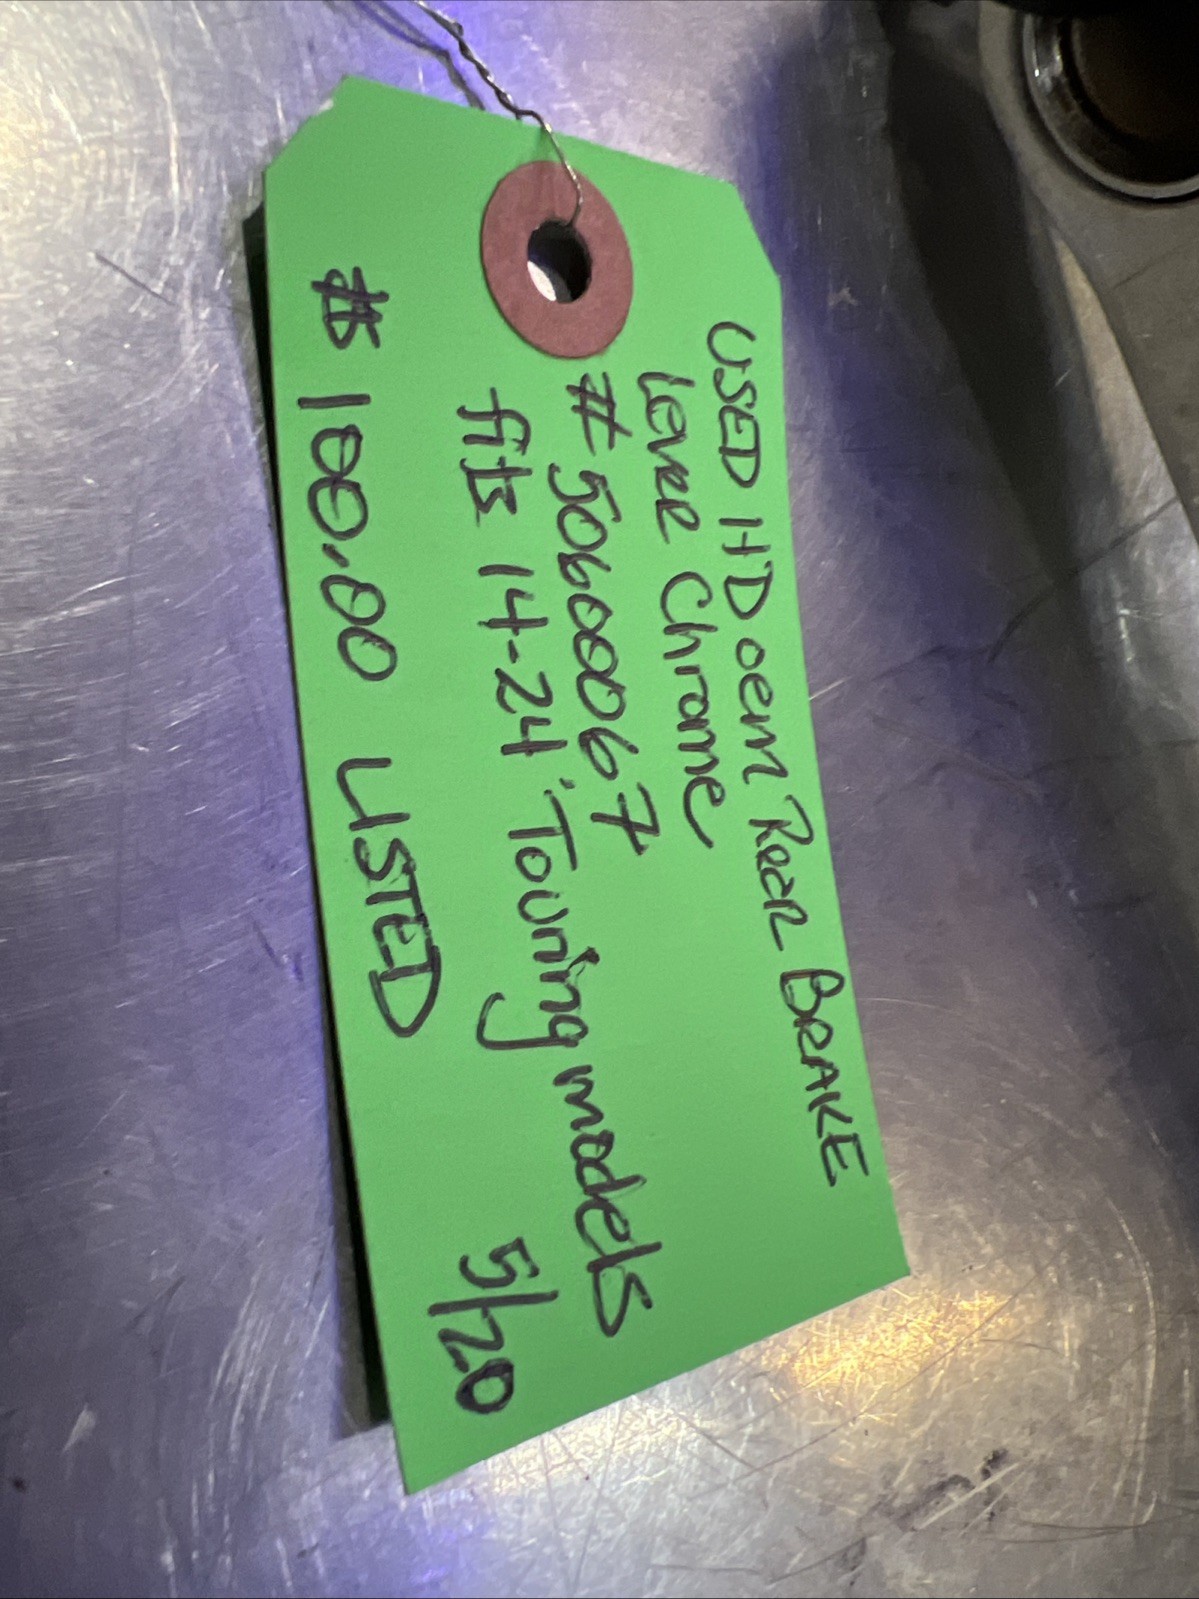 USED HD oem Rear BRAKE
Lever Chrome
#50600067
fits 14-24' Touring models
$100.00 LISTED 5/20